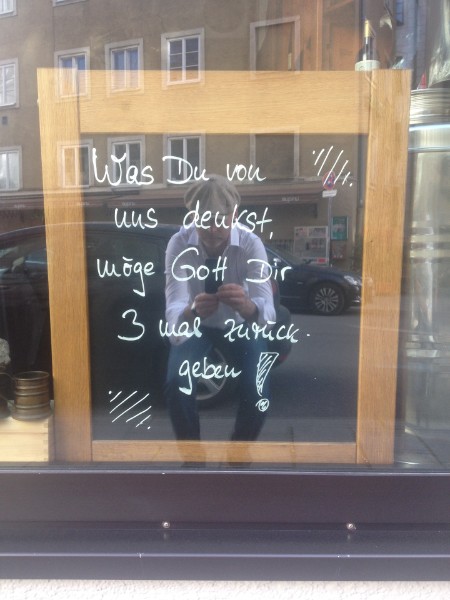 Was Du von
uns denkst,
möge Gott Dir
3 mal zurück-
geben!